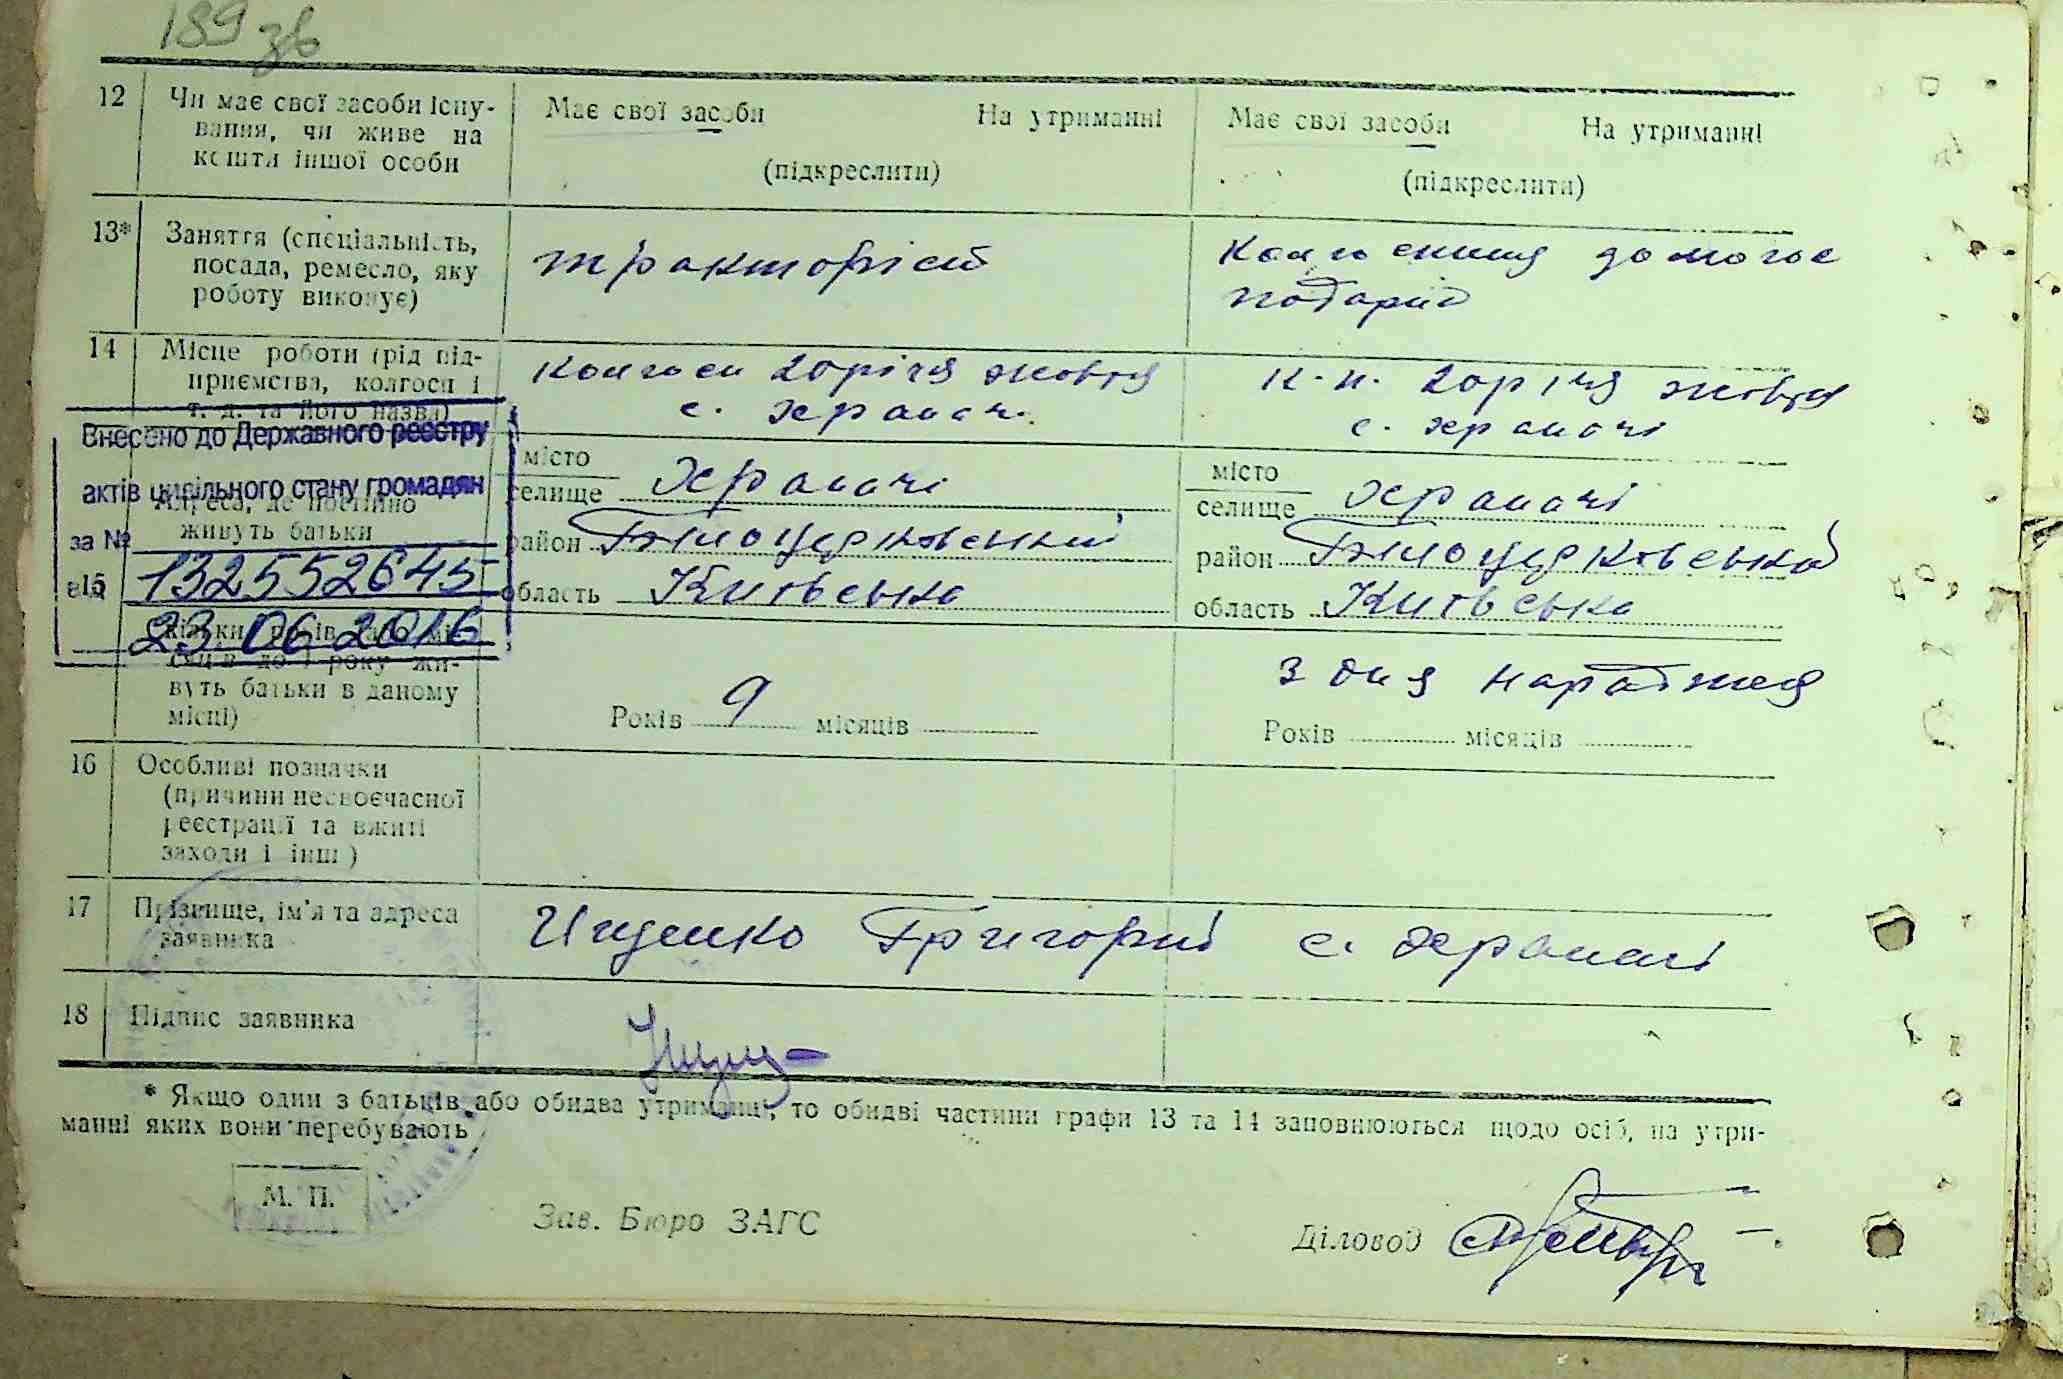 189 зв
12 Чи має свої засоби існу- Має свої засоби На утриманні Має свої засоби На утриманні
вання, чи живе на
кошти іншої особи (підкреслити) (підкреслити)
13* Заняття (спеціальність, тракторіст
посада, ремесло, яку
роботу виконує)
14 Місце роботи (рід під- колгосп 20 річчя жовтня к-п. 20 річчя жовтня
приємства, колгосп і с. Храпачі с. Храпачі
т. д. та його назва)
Внесено до Державного реєстру
актів цивільного стану громадян
за № 132552645
23.06.2016
15 Адреса, де постійно
живуть батьки
місто
селище Храпачі
район Білоцерковський
область Київська
місто
селище Храпачі
район Білоцерковський
область Київська
жи-
вуть батьки в даному
місці)
Років 9 місяців
з дня народження
Років місяців
16 Особливі позначки
(причини несвоєчасної
реєстрації та вжиті
заходи і інш)
17 Прізвище, ім'я та адреса Ищенко Григорій с. Храпачі
заявника
18 Підпис заявника
* Якщо один з батьків або обидва утриманці, то обидві частини графи 13 та 14 заповнюються щодо осіб, на утри-
манні яких вони перебувають
М. П.
Зав. Бюро ЗАГС Діловод